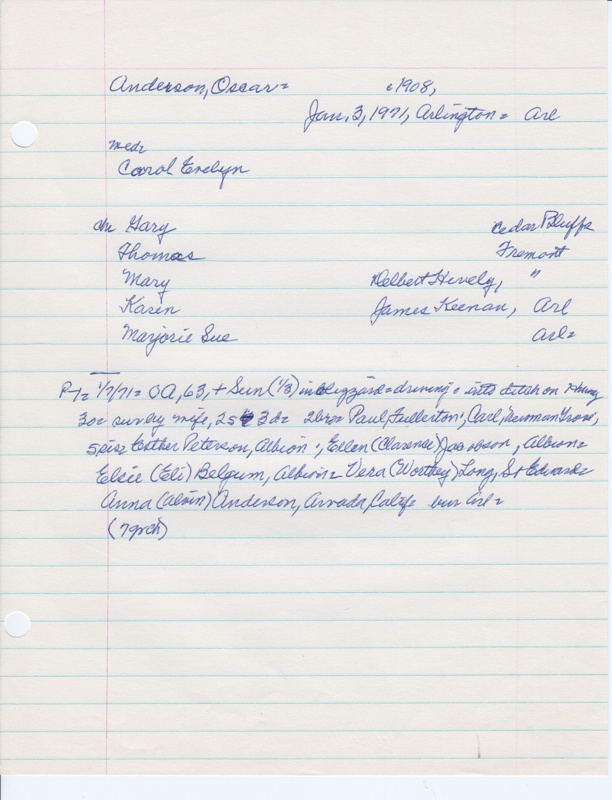 Anderson, Oscar= c1908,
Jan. 3, 1971, Arlington= Arl
med=
Carol Evelyn
chr Gary Cedar Bluffs
Thomas Fremont
Mary Delbert Hively, "
Karen James Keenan, Arl
Marjorie Sue Arl=
PT= 1/7/71= OA, 63, + Sun (1/3) in blizzard= driving= into ditch on Hiway
30= surv by wife, 2s 3d= 2bro= Paul, Fullerton; Carl, Newman Grove;
5 sis= Esther Peterson, Albion; Ellen (Clarence) Jacobson, Albion=
Elsie (Eli) Belgum, Albion= Vera (Worthey) Long, St Edwards
Anna (Alvin) Anderson, Arvada, Calif= bur Arl=
(7grch)